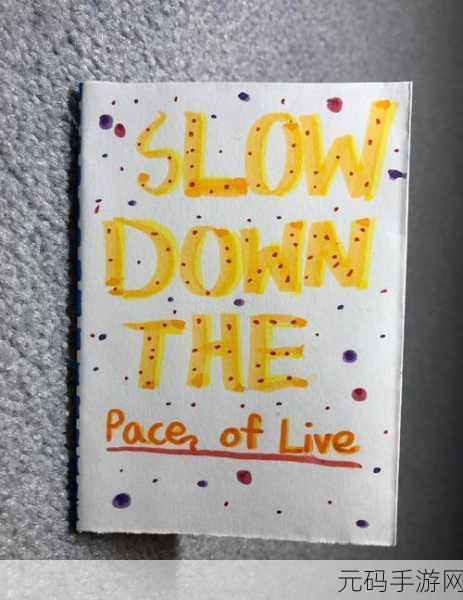 SLOW
DOWN
THE
Pace, of Live
元码手游网